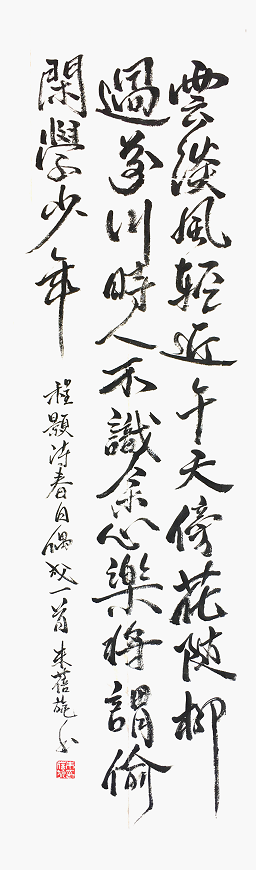 雲淡風輕近午天傍花隨柳
過前川時人不識余心樂將謂偷
閑學少年
程顥詩春日偶成一首朱蓓蓓